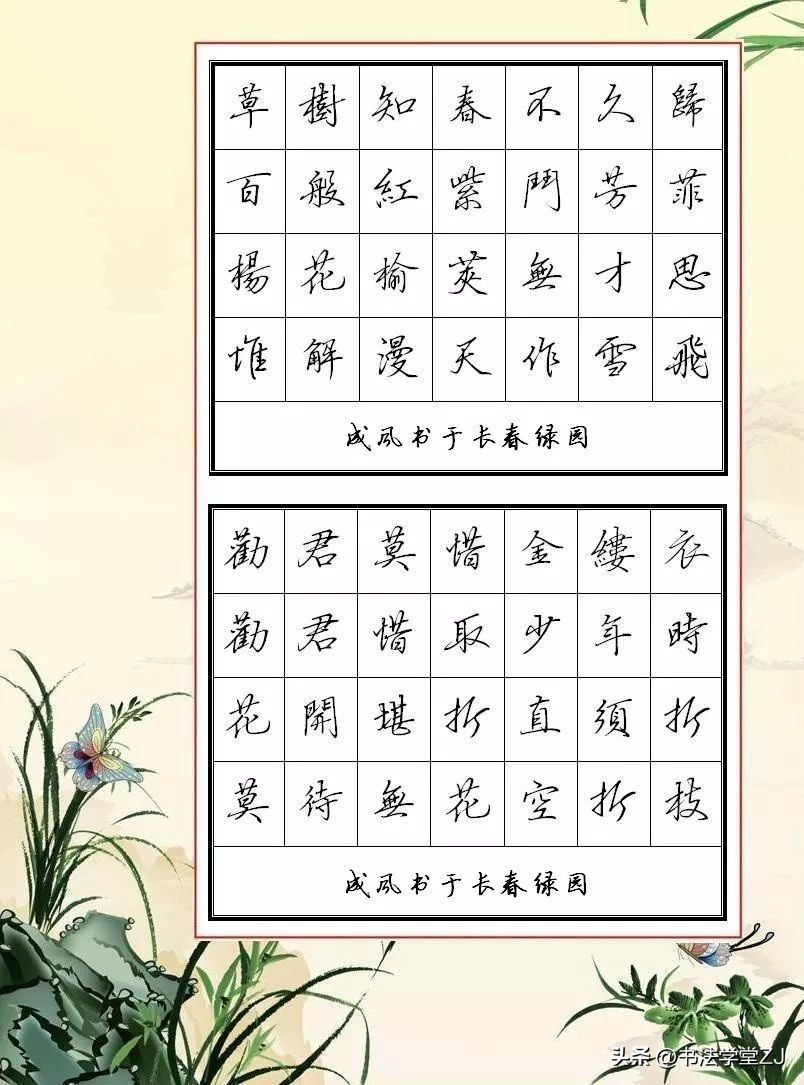 草樹知春不久歸
百般紅紫鬥芳菲
楊花榆莢無才思
惟解漫天作雪飛
成风书于长春绿园
勸君莫惜金縷衣
勸君惜取少年時
花開堪折直須折
莫待無花空折枝
成风书于长春绿园
头条 @书法学堂ZJ